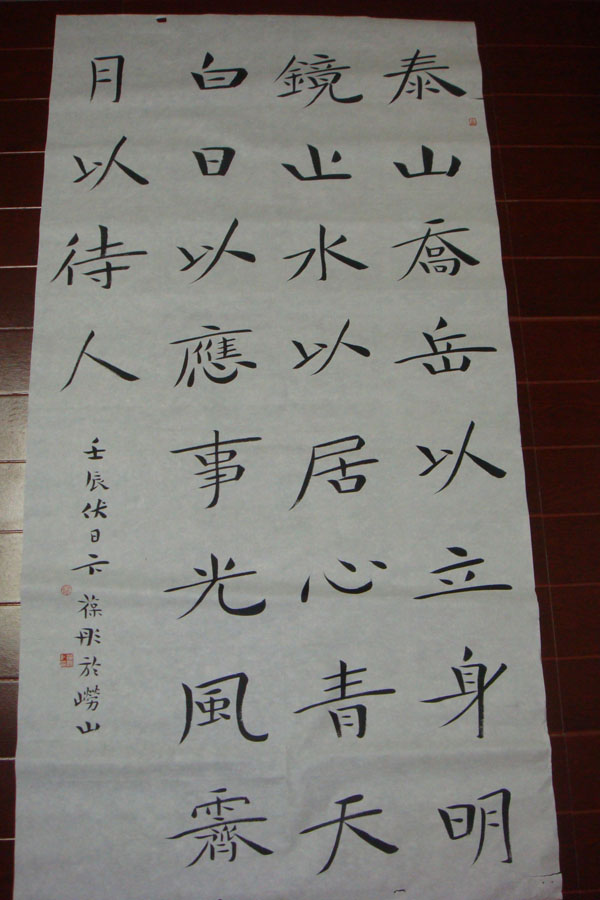 泰山喬岳以立身明
鏡止水以居心青天
白日以應事光風霽
月以待人
壬辰伏日卞葆彤於嶗山